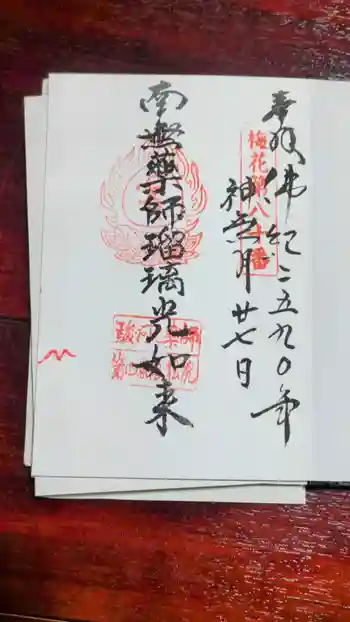 奉拝
佛紀二五九〇年
神無月廿七日
梅花第八十番
南無薬師瑠璃光如来
駿河薬師